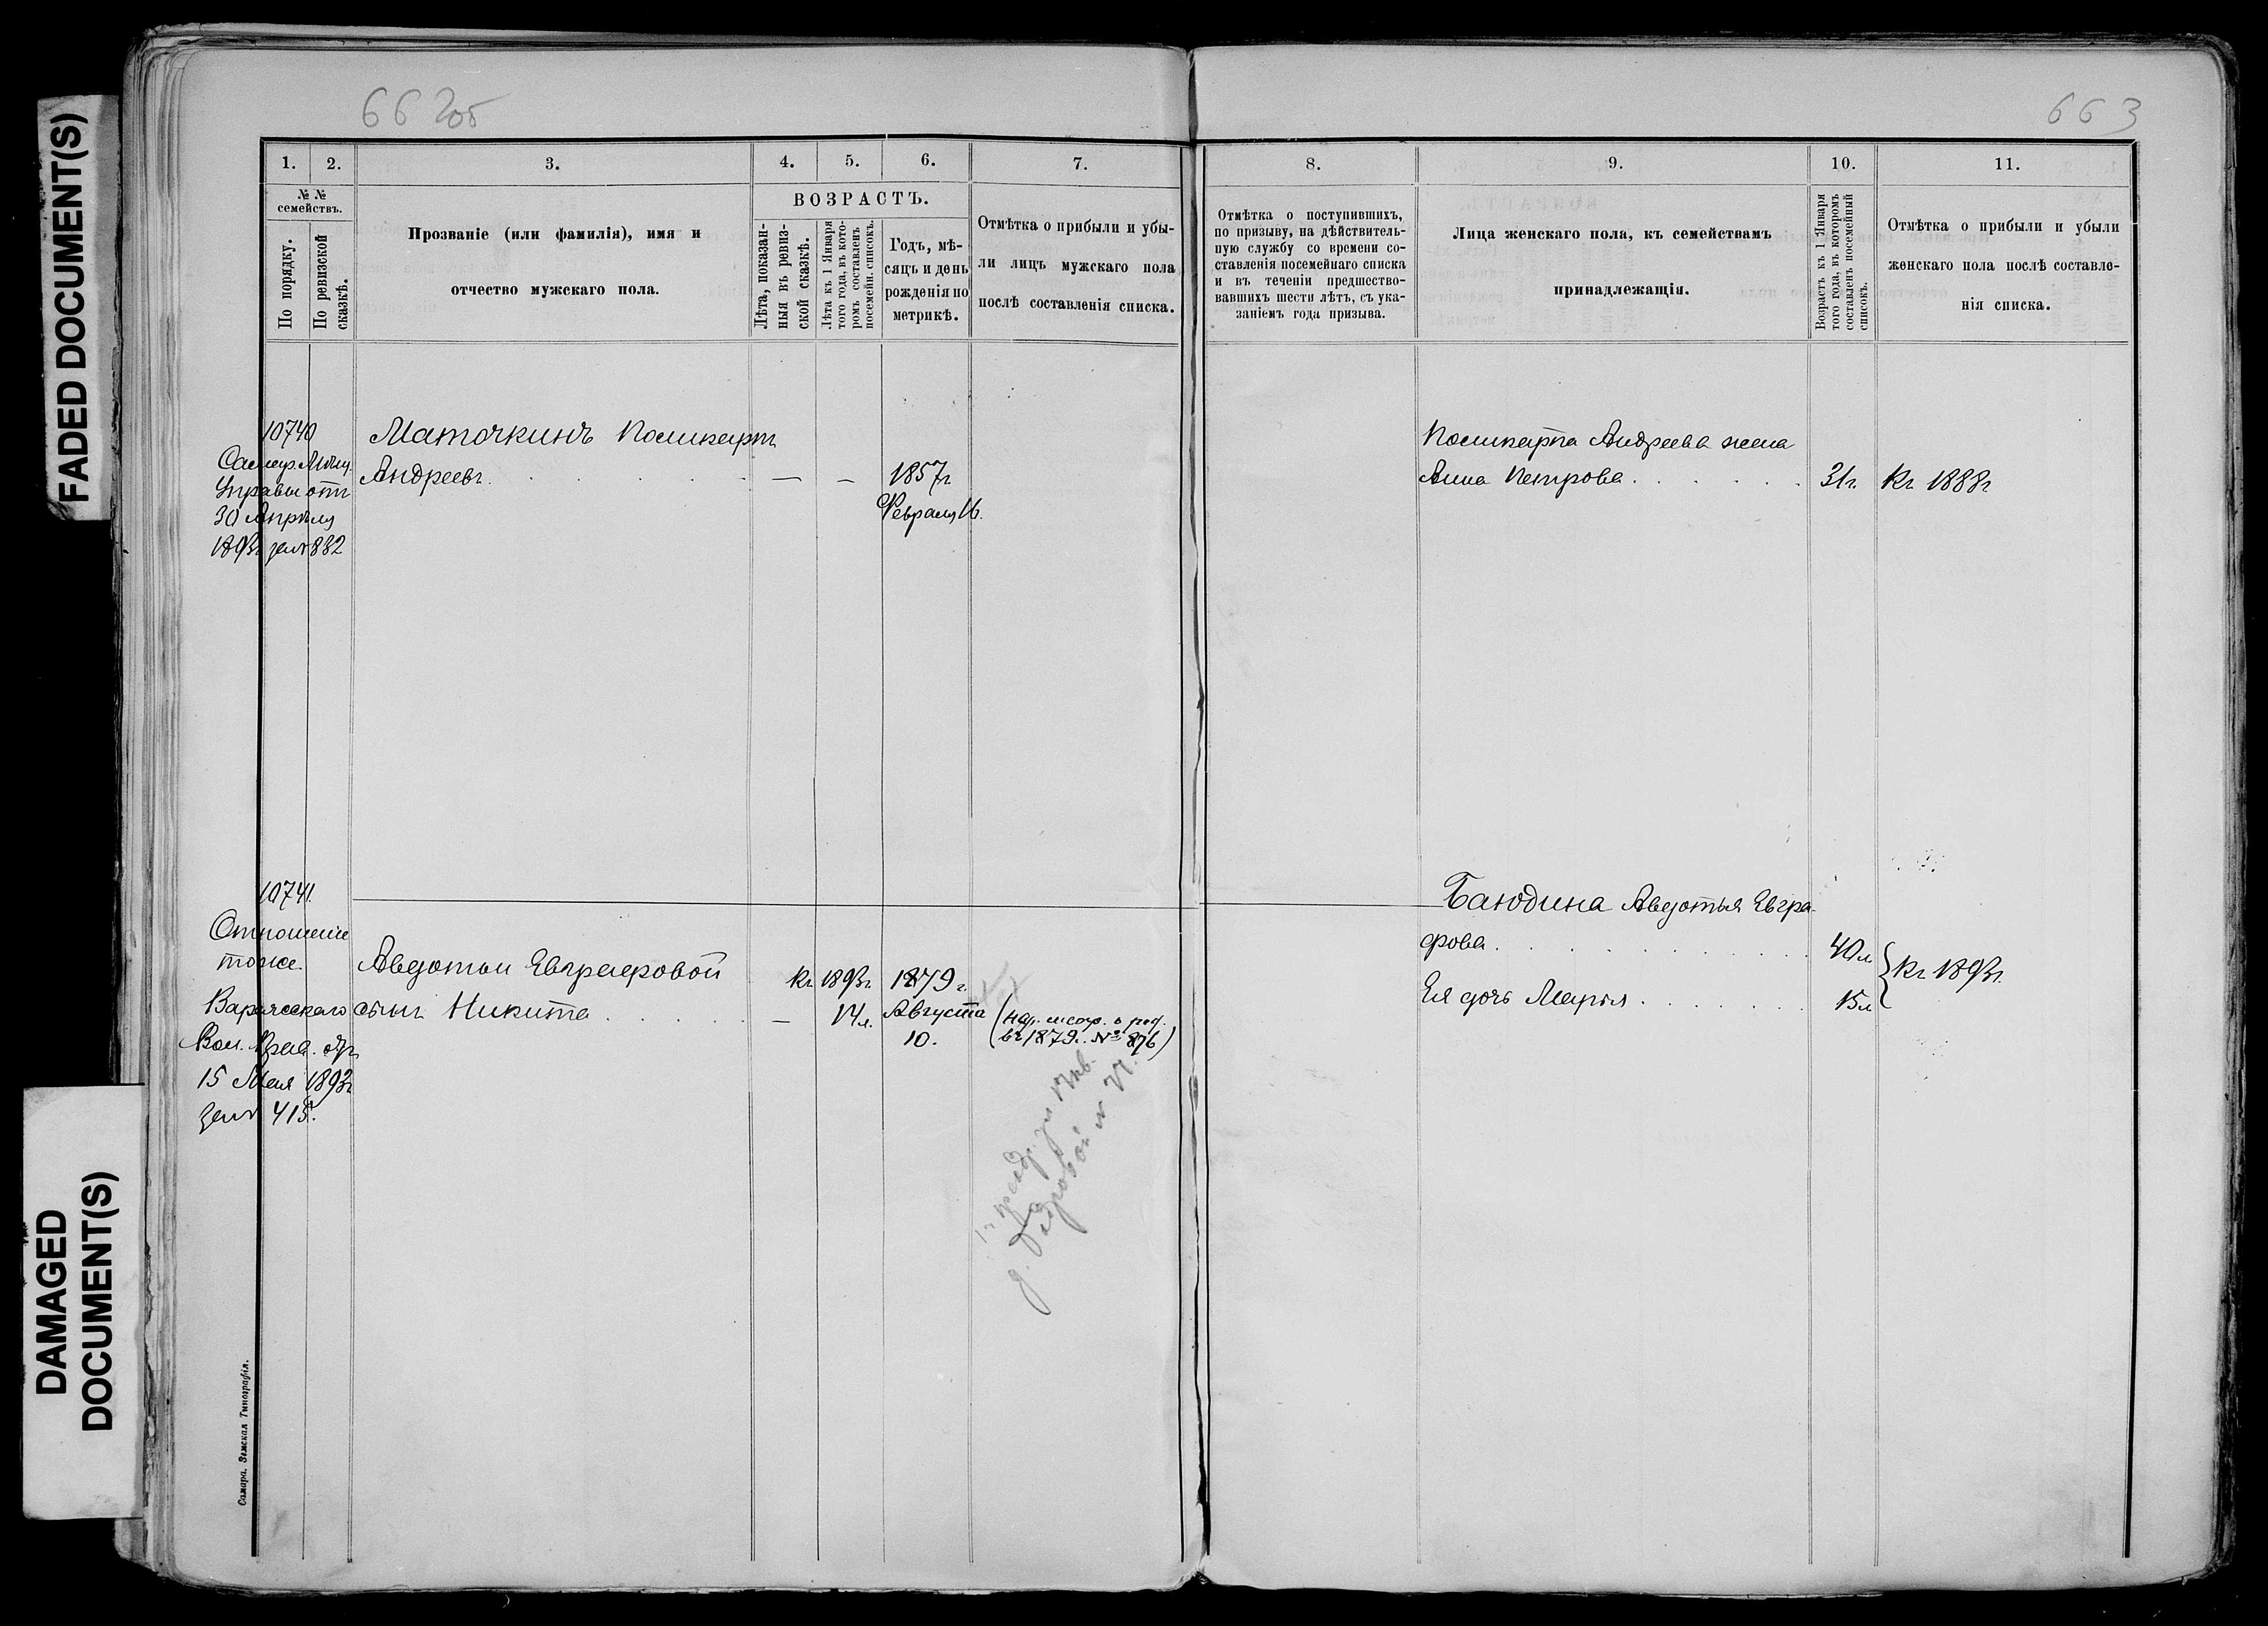 FADED DOCUMENT(S)
DAMAGED
DOCUMENT(S)
662об
1.
2.
3.
4.
5.
6.
7.
№ №
семействъ.
По порядку.
По ревизской
сказкѣ.
Прозваніе (или фамилія), имя и
отчество мужскаго пола.
ВОЗРАСТЪ.
Лѣта, показан-
ныя въ ревиз-
ской сказкѣ.
Лѣта къ 1 Января
того года, въ кото-
ромъ составленъ
посемейн. списокъ.
Годъ, мѣ-
сяцъ и день
рожденія по
метрикѣ.
Отмѣтка о прибыли и убы-
ли лицъ мужскаго пола
послѣ составленія списка.
10740
Самар. Мѣщ.
Управы отъ
30 Апрѣля
1893г за № 832
Маточкинъ Поликарпъ
Андреевъ
— —
1857г
Февраля 16.
10741.
Отношеніе
тоже
Вол. Прав. отъ
15 Мая 1893г
за № 415.
Авдотьи Евграфовой
сынъ Никита
—
къ 1893г
14л.
1879г.
Августа
10.
въ 1879г. № 876)
Самара. Земская Типографія.
663
8.
9.
10.
11.
Отмѣтка о поступившихъ,
по призыву, на дѣйствитель-
ную службу со времени со-
ставленія посемейнаго списка
и въ теченіи предшество-
вавшихъ шести лѣтъ, съ ука-
заніемъ года призыва.
Лица женскаго пола, къ семействамъ
принадлежащія.
Возрастъ къ 1 Января
того года, въ которомъ
составленъ посемейный
списокъ.
Отмѣтка о прибыли и убыли
женскаго пола послѣ составле-
нія списка.
Поликарпа Андреева жена
Анна Петрова
31г.
Къ 1888г
Баюдина Авдотья Евгра-
фова
40л
Ея дочь Марья
15л
Къ 1893г.